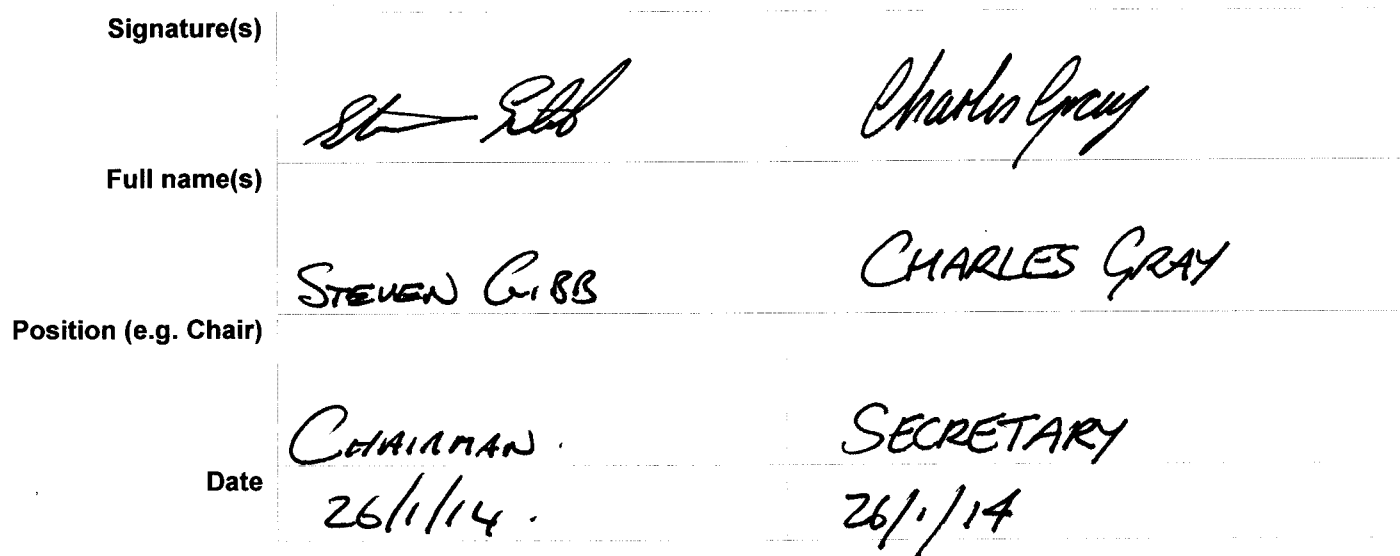 Signature(s)
Steven Gibb Charles Gray
Full name(s)
STEVEN GIBB CHARLES GRAY
Position (e.g. Chair)
CHAIRMAN. SECRETARY
Date
26/1/14. 26/1/14